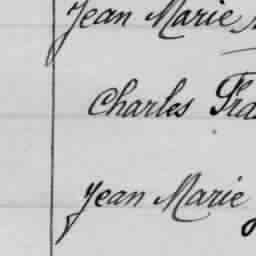 Jean Marie
Charles Fra
Jean Marie